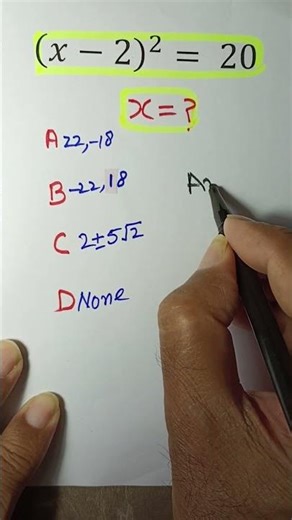 (x − 2)² = 20
x = ?
A 22, -18
B -22, 18
C 2±5√2
D None